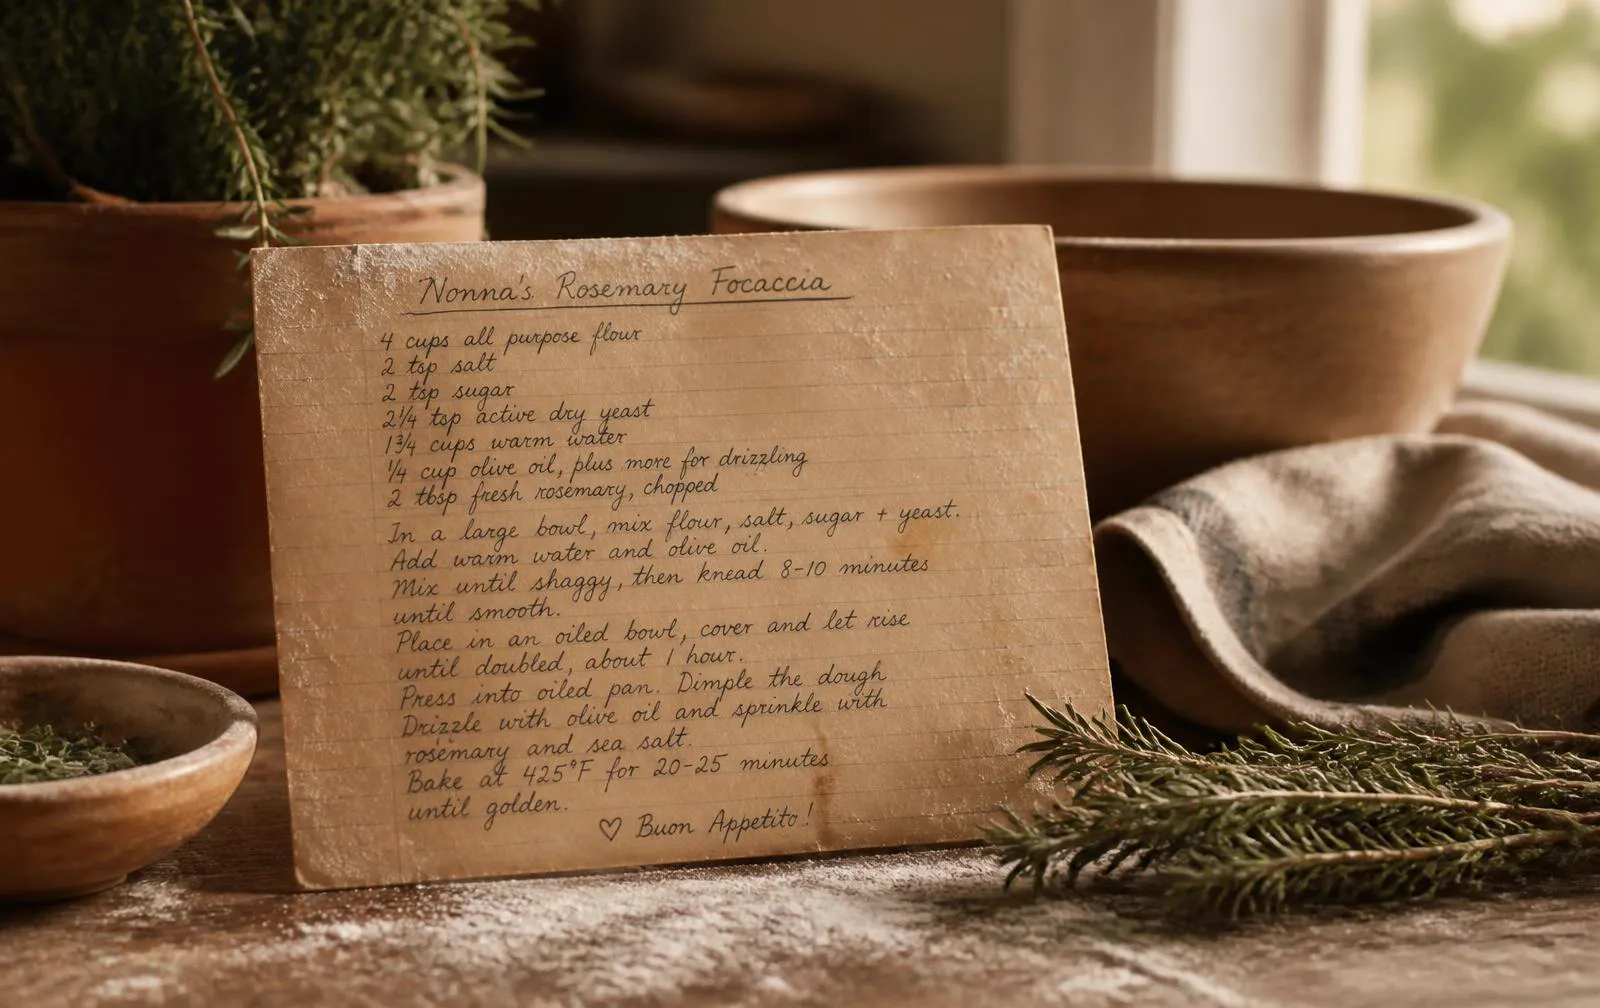 Nonna's Rosemary Focaccia
4 cups all purpose flour
2 tsp salt
2 tsp sugar
2 1/4 tsp active dry yeast
1 3/4 cups warm water
1/4 cup olive oil, plus more for drizzling
2 tbsp fresh rosemary, chopped
In a large bowl, mix flour, salt, sugar + yeast.
Add warm water and olive oil.
Mix until shaggy, then knead 8-10 minutes
until smooth.
Place in an oiled bowl, cover and let rise
until doubled, about 1 hour.
Press into oiled pan. Dimple the dough
Drizzle with olive oil and sprinkle with
rosemary and sea salt.
Bake at 425°F for 20-25 minutes
until golden.
♡ Buon Appetito!